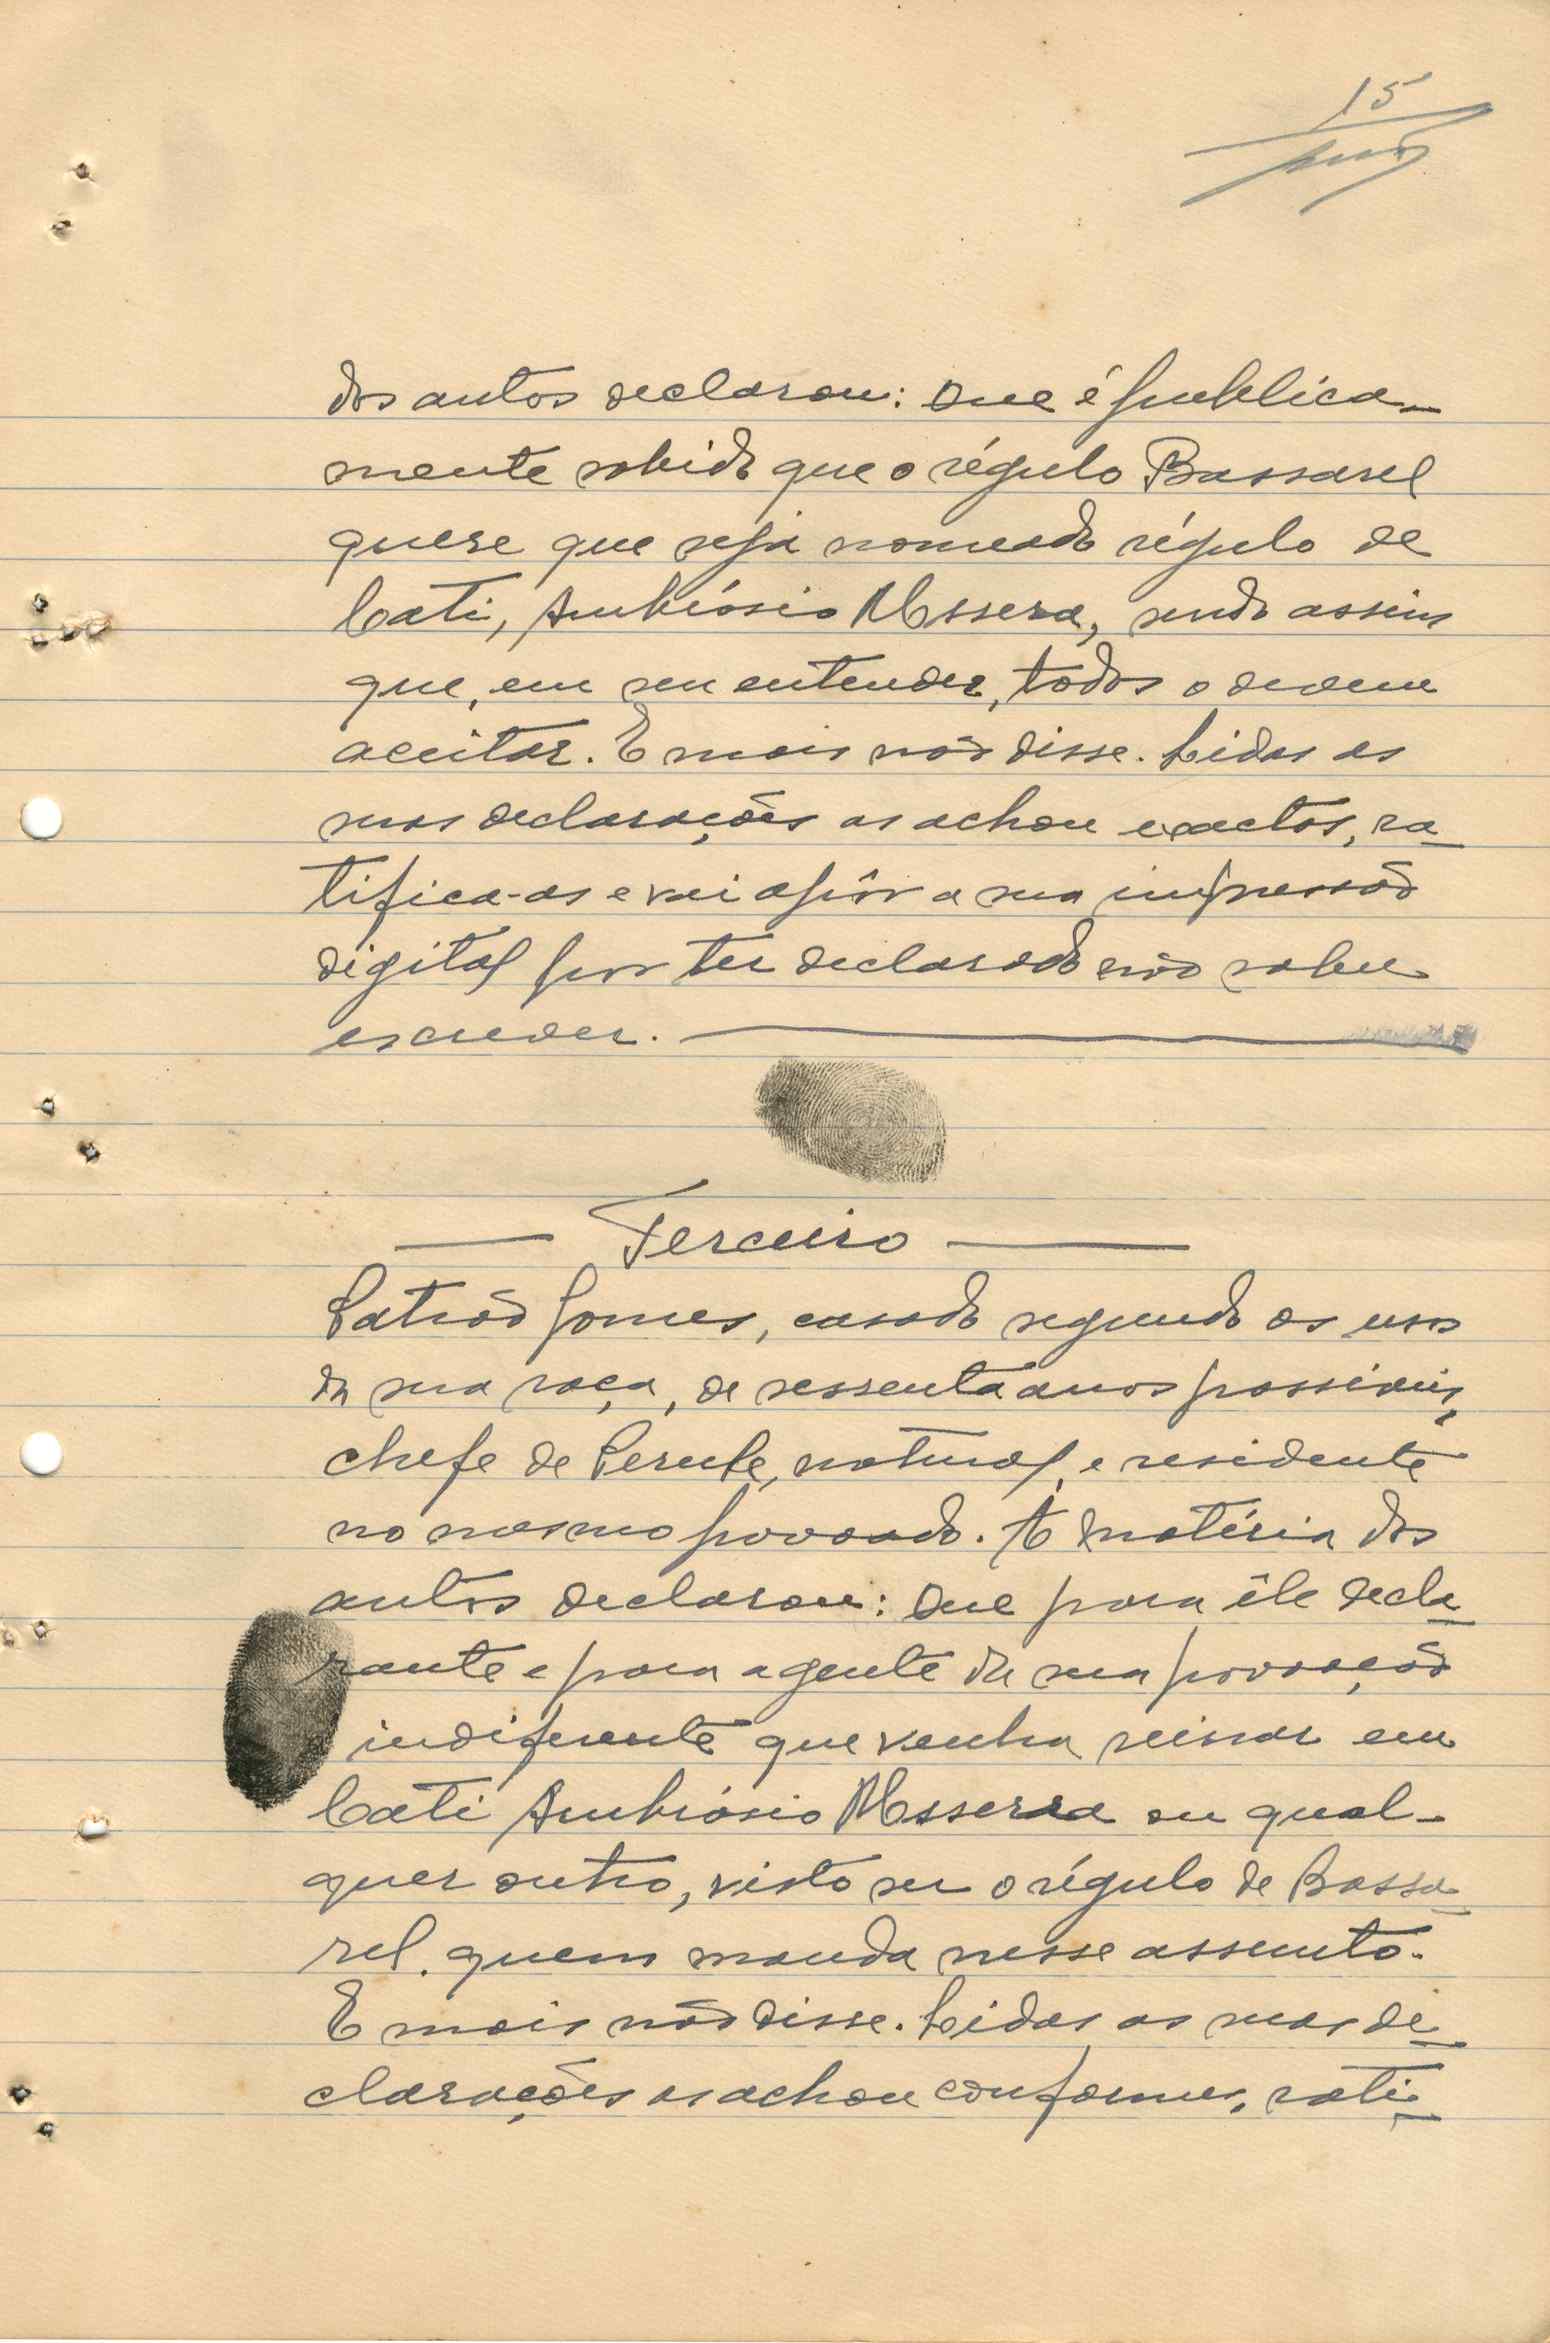 15
dos autos declarou: Que é publica-
mente sabido que o régulo Bassarel
quere que seja nomeado régulo de
Cati, Ambrósio Mssera, sendo assim
que, em seu entender, todos o devem
aceitar. E mais não disse. Lidas as
suas declarações as achou exactas, ra-
tifica-as e vai apôr a sua impressão
digital por ter declarado não saber
escrever.
Terceiro
Patrão Gomes, casado segundo os usos
da sua raça, de sessenta anos possiveis,
chefe de Perupe, natural e residente
no mesmo povoado. A matéria dos
autos declarou: Que para êle decla-
rante e para a gente da sua povoação
indiferente que venha reinar em
Cati Ambrósio Msserra ou qual-
quer outro, visto ser o régulo de Bassa-
rel. quem manda nesse assunto.
E mais não disse. Lidas as suas de-
clarações as achou conformes, rati-